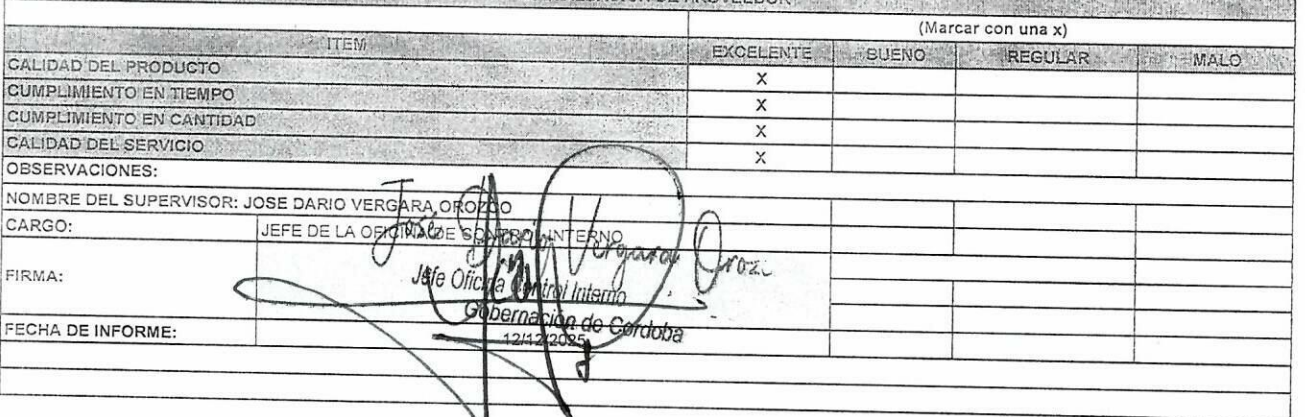 DE PROVEEDOR
(Marcar con una x)
ITEM EXCELENTE BUENO REGULAR MALO
CALIDAD DEL PRODUCTO X
CUMPLIMIENTO EN TIEMPO X
CUMPLIMIENTO EN CANTIDAD X
CALIDAD DEL SERVICIO X
OBSERVACIONES:
NOMBRE DEL SUPERVISOR: JOSE DARIO VERGARA OROZCO
CARGO: JEFE DE LA OFICINA DE CONTROL INTERNO
José Darío Vergara Oroz
FIRMA:
Jefe Oficina Control Interno
Gobernación de Cordoba
FECHA DE INFORME: 12/12/2025